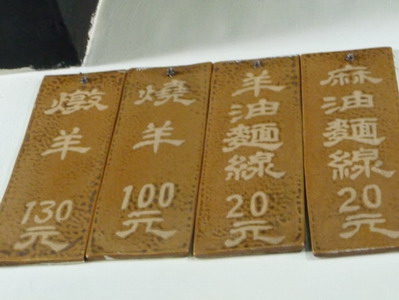 燉羊130元
燒羊100元
羊油麵線20元
麻油麵線20元